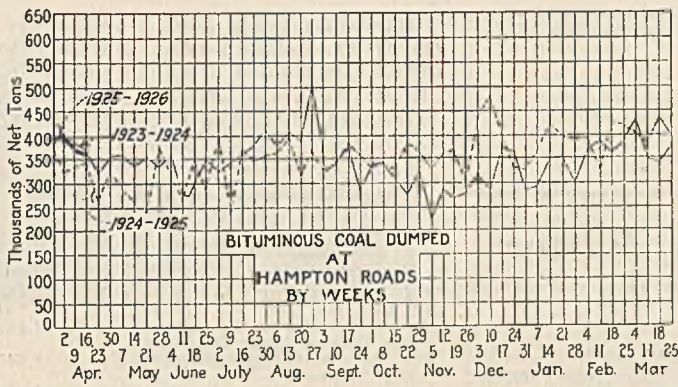 650
600
550
500
450
400
350
300
250
200
150
100
50
0
Thousands of Net Tons
1925-1926
1923-1924
1924-1925
BITUMINOUS COAL DUMPED
AT
HAMPTON ROADS
BY WEEKS
2 16 30 14 28 11 25 9 23 6 20 3 17 1 15 29 12 26 10 24 7 21 4 18 4 18
9 23 7 21 4 18 2 16 30 13 27 10 24 8 22 5 19 3 17 31 14 28 11 25 11 25
Apr. May June July Aug. Sept. Oct. Nov. Dec. Jan. Feb. Mar